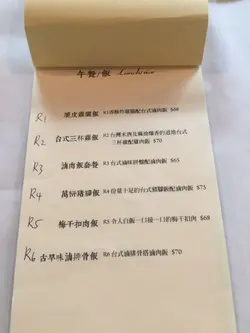 午餐/飯 Lunch/rice
R1 脆皮雞腿飯 R1香酥炸雞腿配台式滷肉飯 $68
R2 台式三杯雞飯 R2台灣米酒及麻油爆香的道地台式
三杯雞配雞肉飯 $70
R3 滷肉飯套餐 R3台式滷味拼盤配滷肉飯 $65
R4 萬份豬腳飯 R4份量十足的台式豬腳飯配滷肉飯 $75
R5 梅干扣肉飯 R5令人白飯一口接一口的梅干扣肉 $68
R6 古早味滷排骨飯 R6台式滷排骨搭滷肉飯 $70